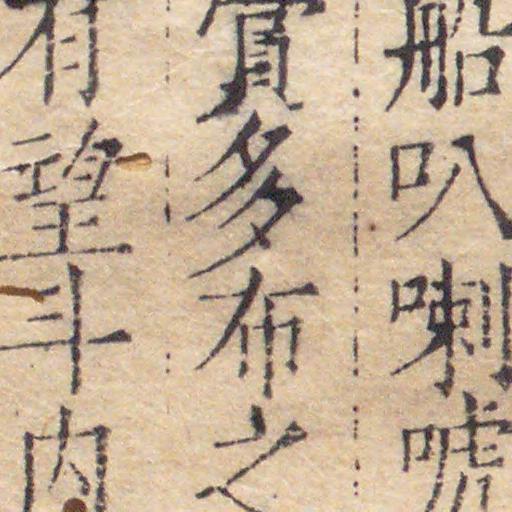 船叭喇唬
賞多布之
有望斗内